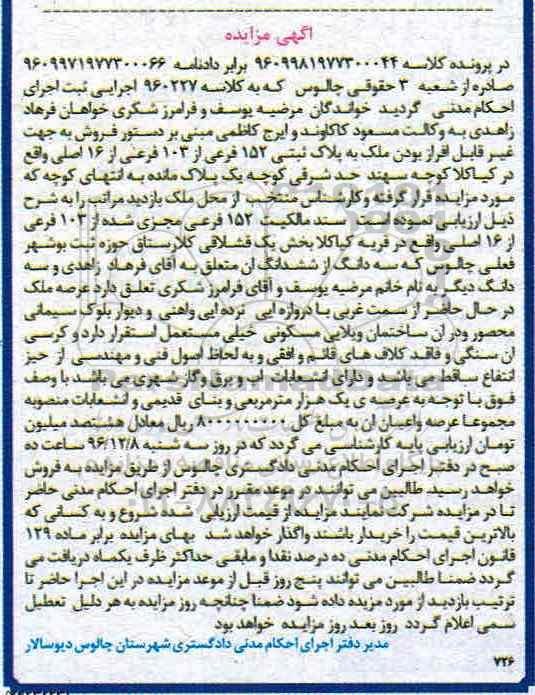 آگهی مزایده
در پرونده کلاسه ۹۶۰۹۹۸۱۹۷۷۳۰۰۰۴۴ برابر دادنامه ۹۶۰۹۹۷۱۹۷۷۳۰۰۰۶۶
صادره از شعبه ۳ حقوقی چالوس که به کلاسه ۹۶۰۲۲۷ اجرایی ثبت اجرای
احکام مدنی گردید خواندگان مرضیه یوسف و فرامرز شکری خواهان فرهاد
زاهدی به وکالت مسعود کاکاوند و ایرج کاظمی مبنی بر دستور فروش به جهت
غیر قابل افراز بودن ملک به پلاک ثبتی ۱۵۲ فرعی از ۱۰۳ فرعی از ۱۶ اصلی واقع
در کیاکلا کوچه سهند حد شرقی کوچه یک پلاک مانده به انتهای کوچه که
مورد مزایده قرار گرفته و کارشناس منتخب از محل ملک بازدید مراتب را به شرح
ذیل ارزیابی نموده است سند مالکیت ۱۵۲ فرعی مجزی شده از ۱۰۳ فرعی
از ۱۶ اصلی واقع در قریه کیاکلا بخش یک قشلاقی کلارستاق حوزه ثبت نوشهر
فعلی چالوس که سه دانگ از ششدانگ آن متعلق به آقای فرهاد زاهدی و سه
دانگ دیگر به نام خانم مرضیه یوسف و آقای فرامرز شکری تعلق دارد عرصه ملک
در حال حاضر از سمت غربی با دروازه ایی نرده ایی واهنی و دیوار بلوک سیمانی
محصور ودر ان ساختمان ویلایی مسکونی خیلی مستعمل استقرار دارد و کرسی
ان سنگی و فاقد کلاف های قائم و افقی و به لحاظ اصول فنی و مهندسی از حیز
انتفاع ساقط می باشد و دارای انشعابات اب و برق و گاز شهری می باشد با وصف
فوق با توجه به عرصه ی یک هزار مترمربعی و بنای قدیمی و انشعابات منصوبه
مجموعا عرصه واعیان ان به مبلغ کل ۸۰۰۰۰۰۰۰۰۰ ریال معادل هشتصد میلیون
تومان ارزیابی پایه کارشناسی می گردد که در روز سه شنبه ۹۶/۱۲/۸ ساعت ده
صبح در دفتر اجرای احکام مدنی دادگستری چالوس از طریق مزایده به فروش
خواهد رسید طالبین می توانند در موعد مقرر در دفتر اجرای احکام مدنی حاضر
تا در مزایده شرکت نمایند مزایده از قیمت ارزیابی شده شروع و به کسانی که
بالاترین قیمت را خریدار باشند واگذار خواهد شد بهای مزایده برابر ماده ۱۲۹
قانون اجرای احکام مدنی ده درصد نقدا و مابقی حداکثر ظرف یکماه دریافت می
گردد ضمنا طالبین می توانند پنج روز قبل از موعد مزایده در این اجرا حاضر تا
ترتیب بازدید از مورد مزیده داده شود ضمنا چنانچه روز مزایده به هر دلیل تعطیل
رسمی اعلام گردد روز بعد روز مزایده خواهد بود
مدیر دفتر اجرای احکام مدنی دادگستری شهرستان چالوس دیوسالار
۷۳۶